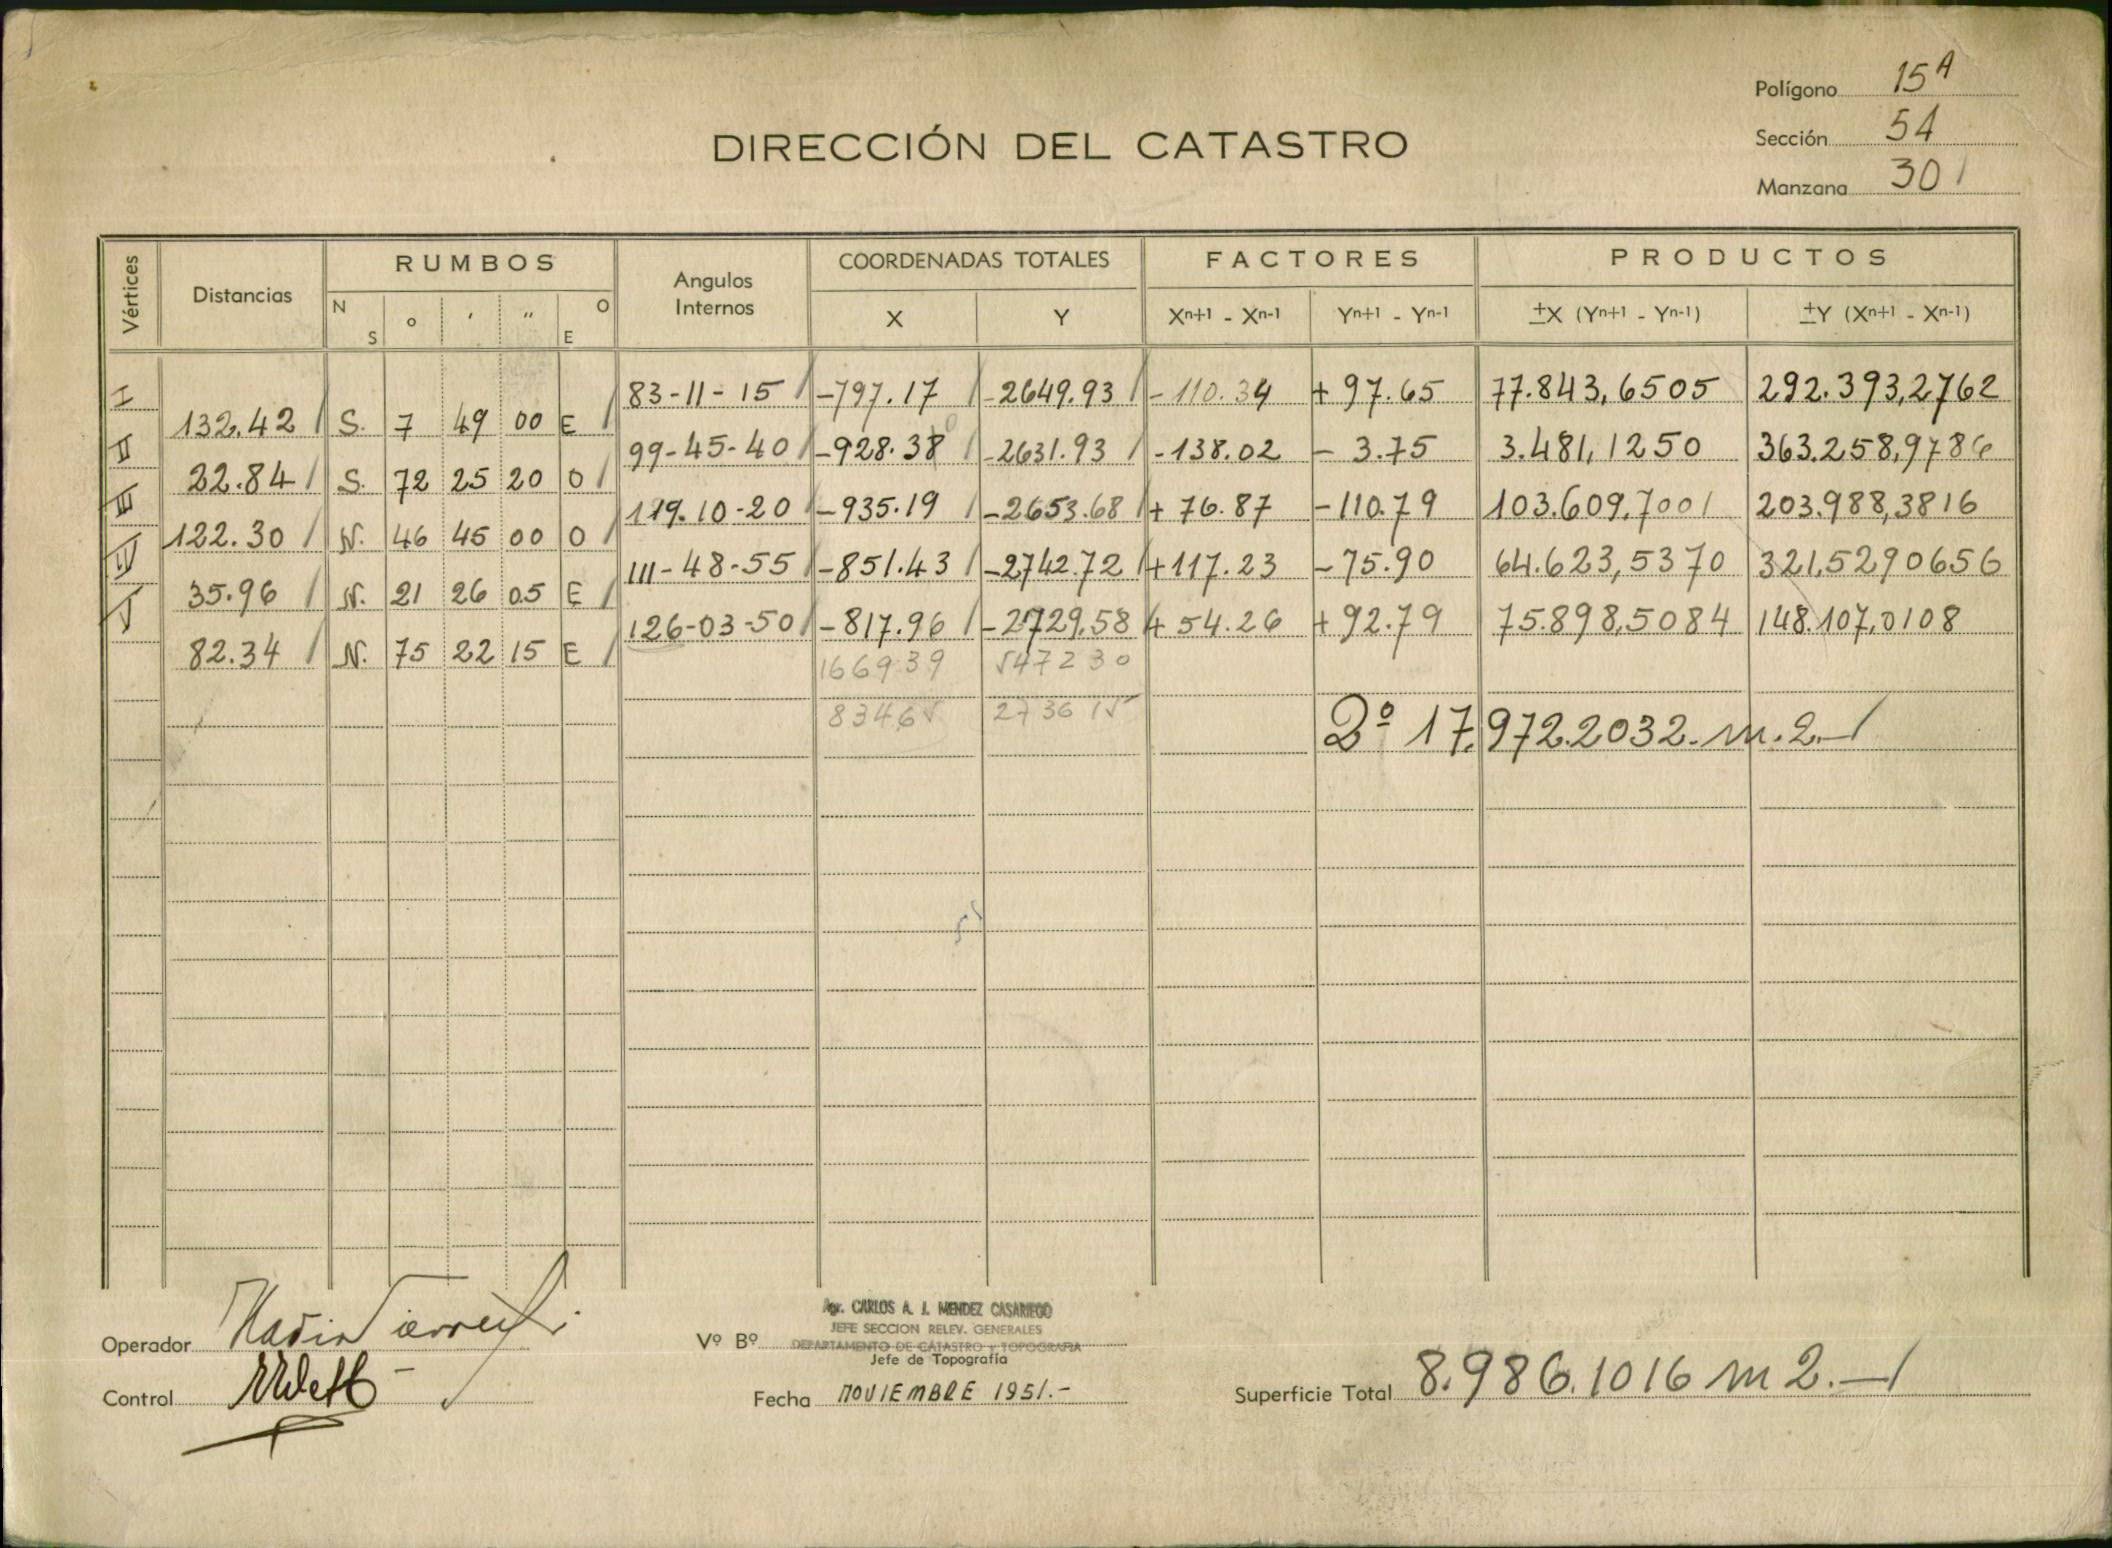 Polígono 15A
Sección 54
Manzana 301
DIRECCIÓN DEL CATASTRO
Vértices Distancias RUMBOS Angulos Internos COORDENADAS TOTALES FACTORES PRODUCTOS
N S o ' " O E X Y Xn+1 - Xn-1 Yn+1 - Yn-1 ±X (Yn+1 - Yn-1) ±Y (Xn+1 - Xn-1)
I 83-11-15 -797.17 -2649.93 -110.34 +97.65 77.843,6505 292.393,2762
132.42 S. 7 49 00 E
II 99-45-40 -928.38 -2631.93 -138.02 -3.75 3.481,1250 363.258,9786
22.84 S. 72 25 20 O
III 119.10-20 -935.19 -2653.68 +76.87 -110.79 103.609,7001 203.988,3816
122.30 N. 46 45 00 O
IV 111-48-55 -851.43 -2742.72 +117.23 -75.90 64.623,5370 321,5290656
35.96 N. 21 26 05 E
V 126-03-50 -817.96 -2729.58 +54.26 +92.79 75.898,5084 148.107,0108
82.34 N. 75 22 15 E
166939 547230
83465 273615
2º 17.972.2032. m.2.-
Operador
Control
Vº Bº
Agr. CARLOS A. J. MENDEZ CASARIEGO
JEFE SECCION RELEV. GENERALES
DEPARTAMENTO DE CATASTRO y TOPOGRAFIA
Jefe de Topografía
Fecha NOVIEMBRE 1951.-
Superficie Total 8.986.1016 m2.-